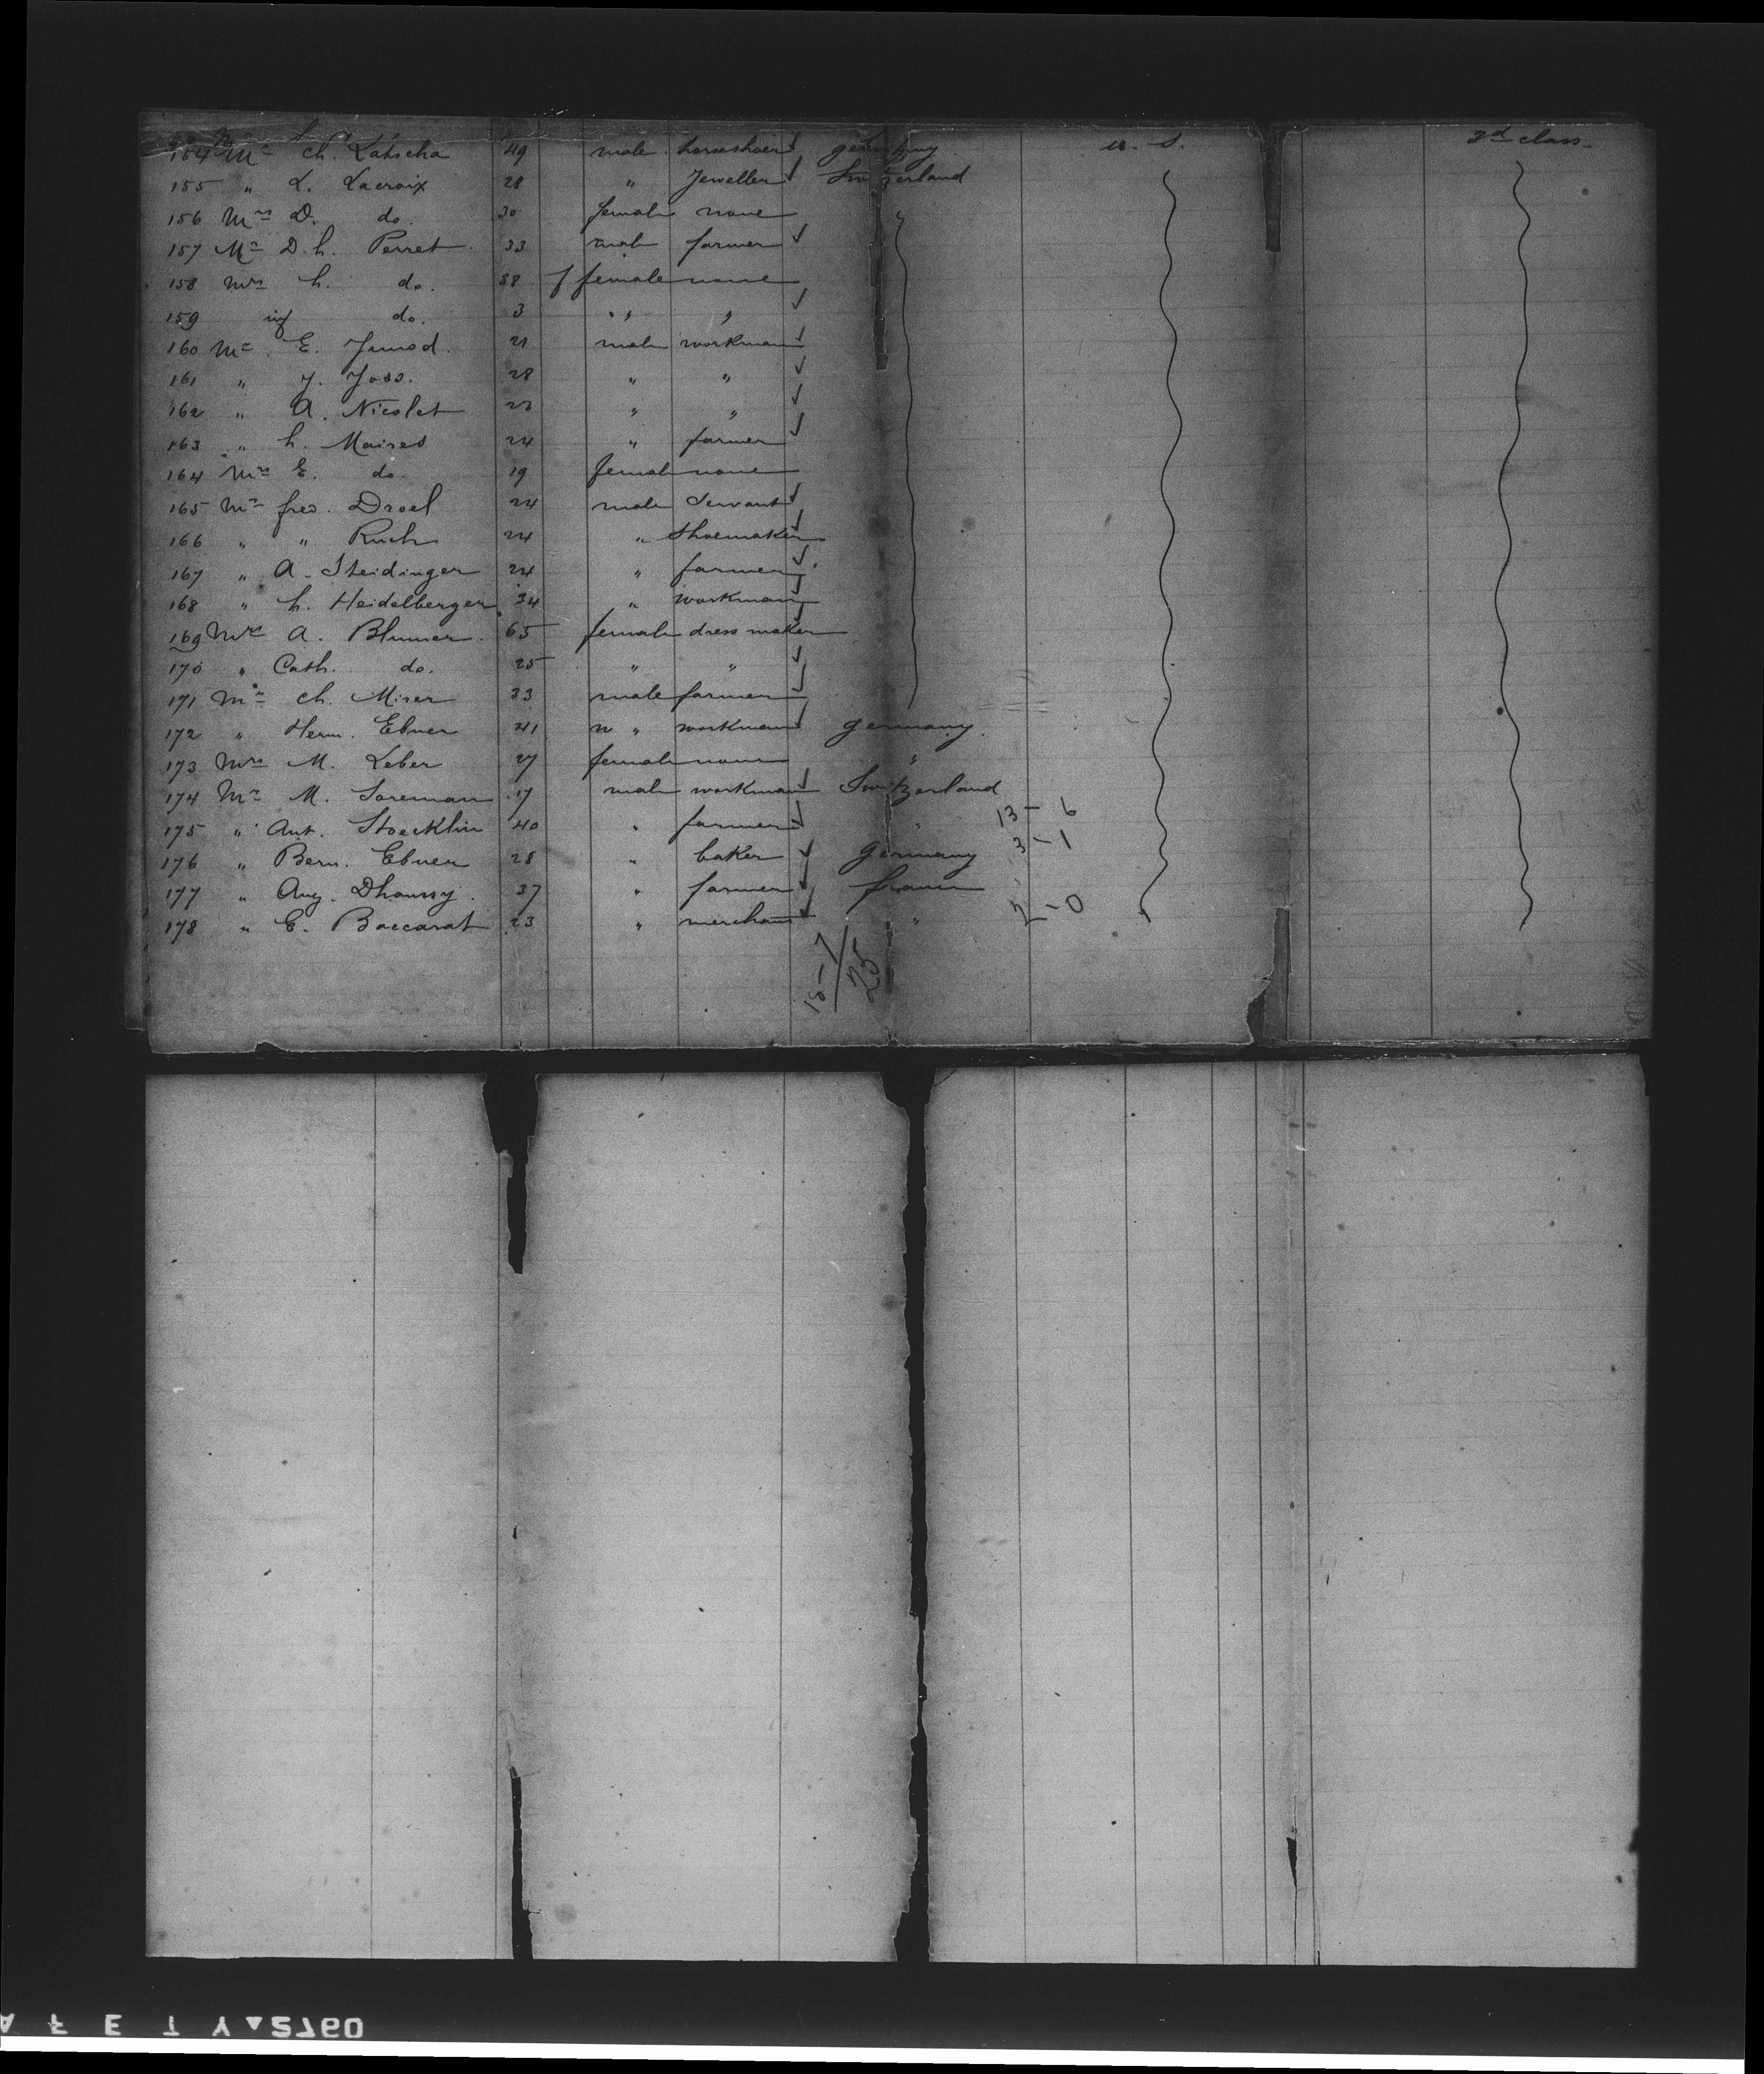 154 Mr Ch. Latscha 49 male horseshoer germany u. s. 3d class
155 " L. Lacroix 28 " Jeweller Switzerland
156 Mrs D. do. 30 female none
157 Mr D. h. Perret 33 male farmer
158 Mrs h. do. 38 f female none
159 inf do. 3 " "
160 Mr E. Junod. 21 male workman
161 " J. Joss. 28 " "
162 " A. Nicolet 23 " "
163 " h. Maires 24 " farmer
164 Mrs E. do. 19 female none
165 Mr fred. Droel 24 male Servant
166 " " Ruch 24 " Shoemaker
167 " A. Steidinger 24 " farmer
168 " h. Heidelberger 34 " workman
169 Mrs A. Blumer 65 female dress maker
170 " Cath. do. 25 " "
171 Mr Ch. Miser 33 male farmer
172 " Herm. Ebner 41 " workman germany
173 Mrs M. Leber 27 female none "
174 Mr M. Soreman 17 male workman Switzerland
175 " Ant. Stoecklin 40 " farmer " 13 - 6
176 " Bern. Ebner 28 " baker germany 3 - 1
177 " Aug. Dhoussy 37 " farmer france
178 " E. Baccarat 23 " merchant " 2 - 0
18 - 7
25
AFETY 5760